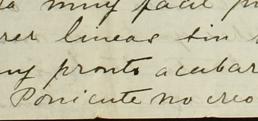 muy facil
lineas sin
pronto acabar
Ponicute no creo